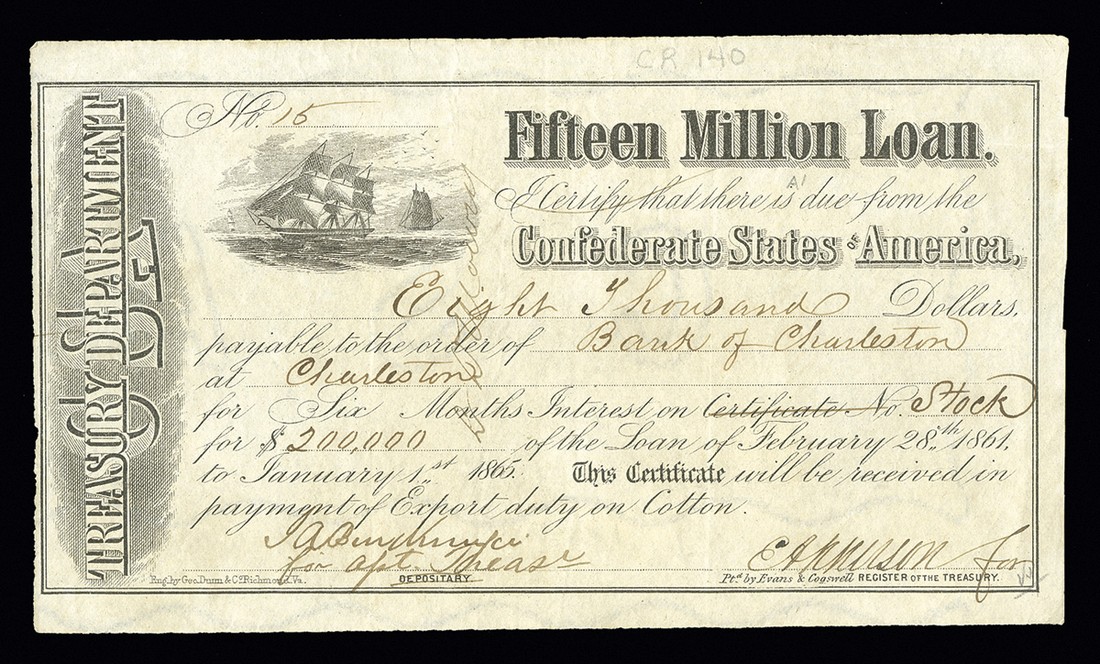 CR 140
TREASURY DEPARTMENT
C.S.A.
No. 15
Fifteen Million Loan.
I Certify that there is due from the
A1
Confederate States of America,
Eight Thousand Dollars,
payable to the order of Bank of Charleston
at Charleston
for Six Months Interest on Certificate No. Stock
for $ 200,000 of the Loan of February 28th 1861,
to January 1st 1865. This Certificate will be received in
payment of Export duty on Cotton.
for Treasr
for
DEPOSITARY
REGISTER OF THE TREASURY.
Eng. by Geo. Dunn & Co. Richmond, Va.
Ptd. by Evans & Cogswell